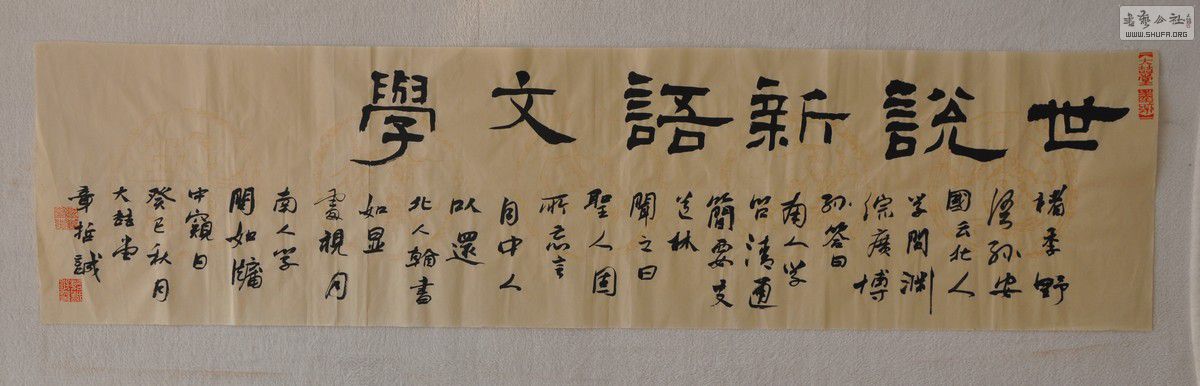 世說新語文學
褚季野
語孫安
國云北人
学問渊
綜廣博
孙答曰
南人学
問清通
簡要支
道林
聞之曰
聖人固
所忘言
自中人
以還
北人翰書
如显
處視月
南人学
問如牖
中窺日
癸巳秋月
書藝公社
WWW.SHUFA.ORG